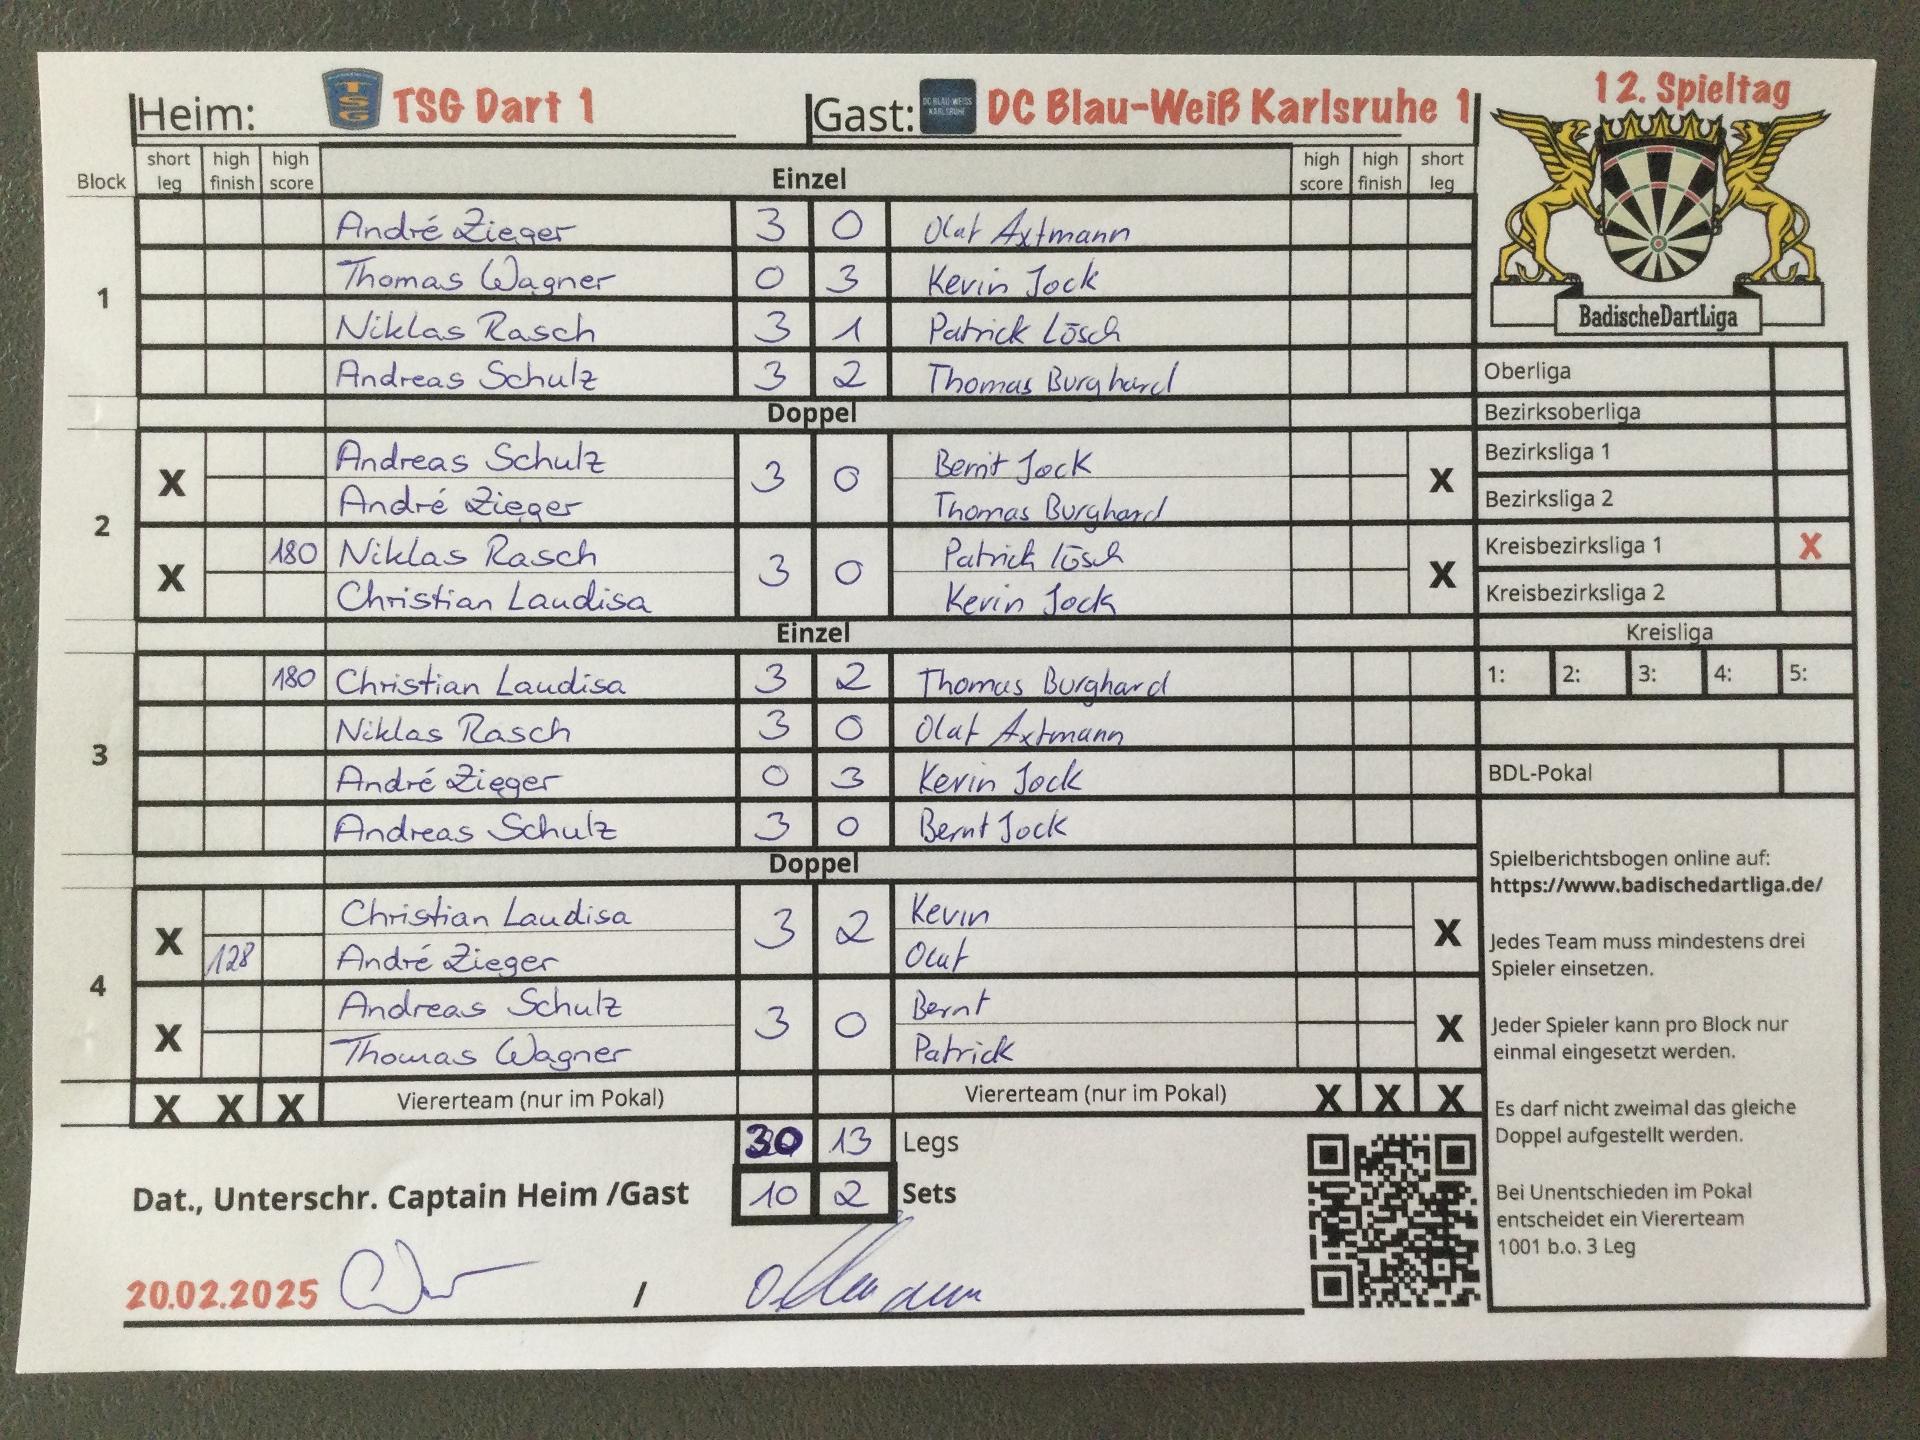 Heim: TSG TSG Dart 1 Gast: DC BLAU-WEISS KARLSRUHE DC Blau-Weiß Karlsruhe 1 12. Spieltag
Block short leg high finish high score Einzel high score high finish short leg
1
André Zieger 3 0 Olaf Axtmann
Thomas Wagner 0 3 Kevin Jock
Niklas Rasch 3 1 Patrick Lösch
Andreas Schulz 3 2 Thomas Burghard
Doppel
2
X Andreas Schulz 3 0 Bernt Jock X
André Zieger Thomas Burghard
X 180 Niklas Rasch 3 0 Patrick Lösch X
Christian Laudisa Kevin Jock
Einzel
3
180 Christian Laudisa 3 2 Thomas Burghard
Niklas Rasch 3 0 Olaf Axtmann
André Zieger 0 3 Kevin Jock
Andreas Schulz 3 0 Bernt Jock
Doppel
4
X Christian Laudisa 3 2 Kevin X
128 André Zieger Olaf
X Andreas Schulz 3 0 Bernt X
Thomas Wagner Patrick
X X X Viererteam (nur im Pokal) Viererteam (nur im Pokal) X X X
30 13 Legs
Dat., Unterschr. Captain Heim /Gast 10 2 Sets
20.02.2025 /
BadischeDartLiga
Oberliga
Bezirksoberliga
Bezirksliga 1
Bezirksliga 2
Kreisbezirksliga 1 X
Kreisbezirksliga 2
Kreisliga
1: 2: 3: 4: 5:
BDL-Pokal
Spielberichtsbogen online auf:
https://www.badischedartliga.de/
Jedes Team muss mindestens drei
Spieler einsetzen.
Jeder Spieler kann pro Block nur
einmal eingesetzt werden.
Es darf nicht zweimal das gleiche
Doppel aufgestellt werden.
Bei Unentschieden im Pokal
entscheidet ein Viererteam
1001 b.o. 3 Leg